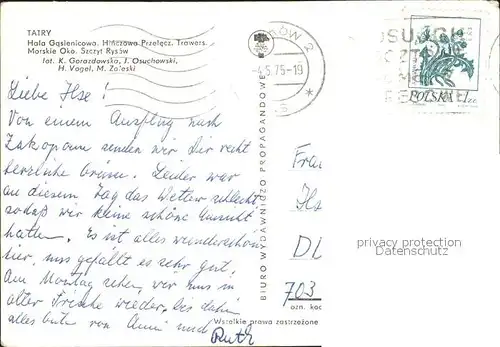 TATRY
Hala Gąsienicowa. Hińczowa Przełęcz. Trawers.
Morskie Oko. Szczyt Rysów
fot. K. Gorazdowska, J. Osuchowski,
H. Vogel, M. Zaleski
-4.5.75-19
POLSKA 1 ZŁ
BIURO WYDAWNICZO PROPAGANDOWE
Liebe Ilse!
Von einem Ausflug nach
Zakopane senden wir Dir recht
herzliche Grüsse. Leider war
an diesem Tag das Wetter schlecht,
sodaß wir keine schöne Aussicht
hatten. Es ist alles wunderschön
hier, uns gefällt es sehr gut.
Am Montag sehen wir uns in
alter Frische wieder, bis dahin
alles Gute von Anni und
Ruth
Wszelkie prawa zastrzeżone
Frau
Ils
DL
703
ozn. kod
privacy protection
Datenschutz